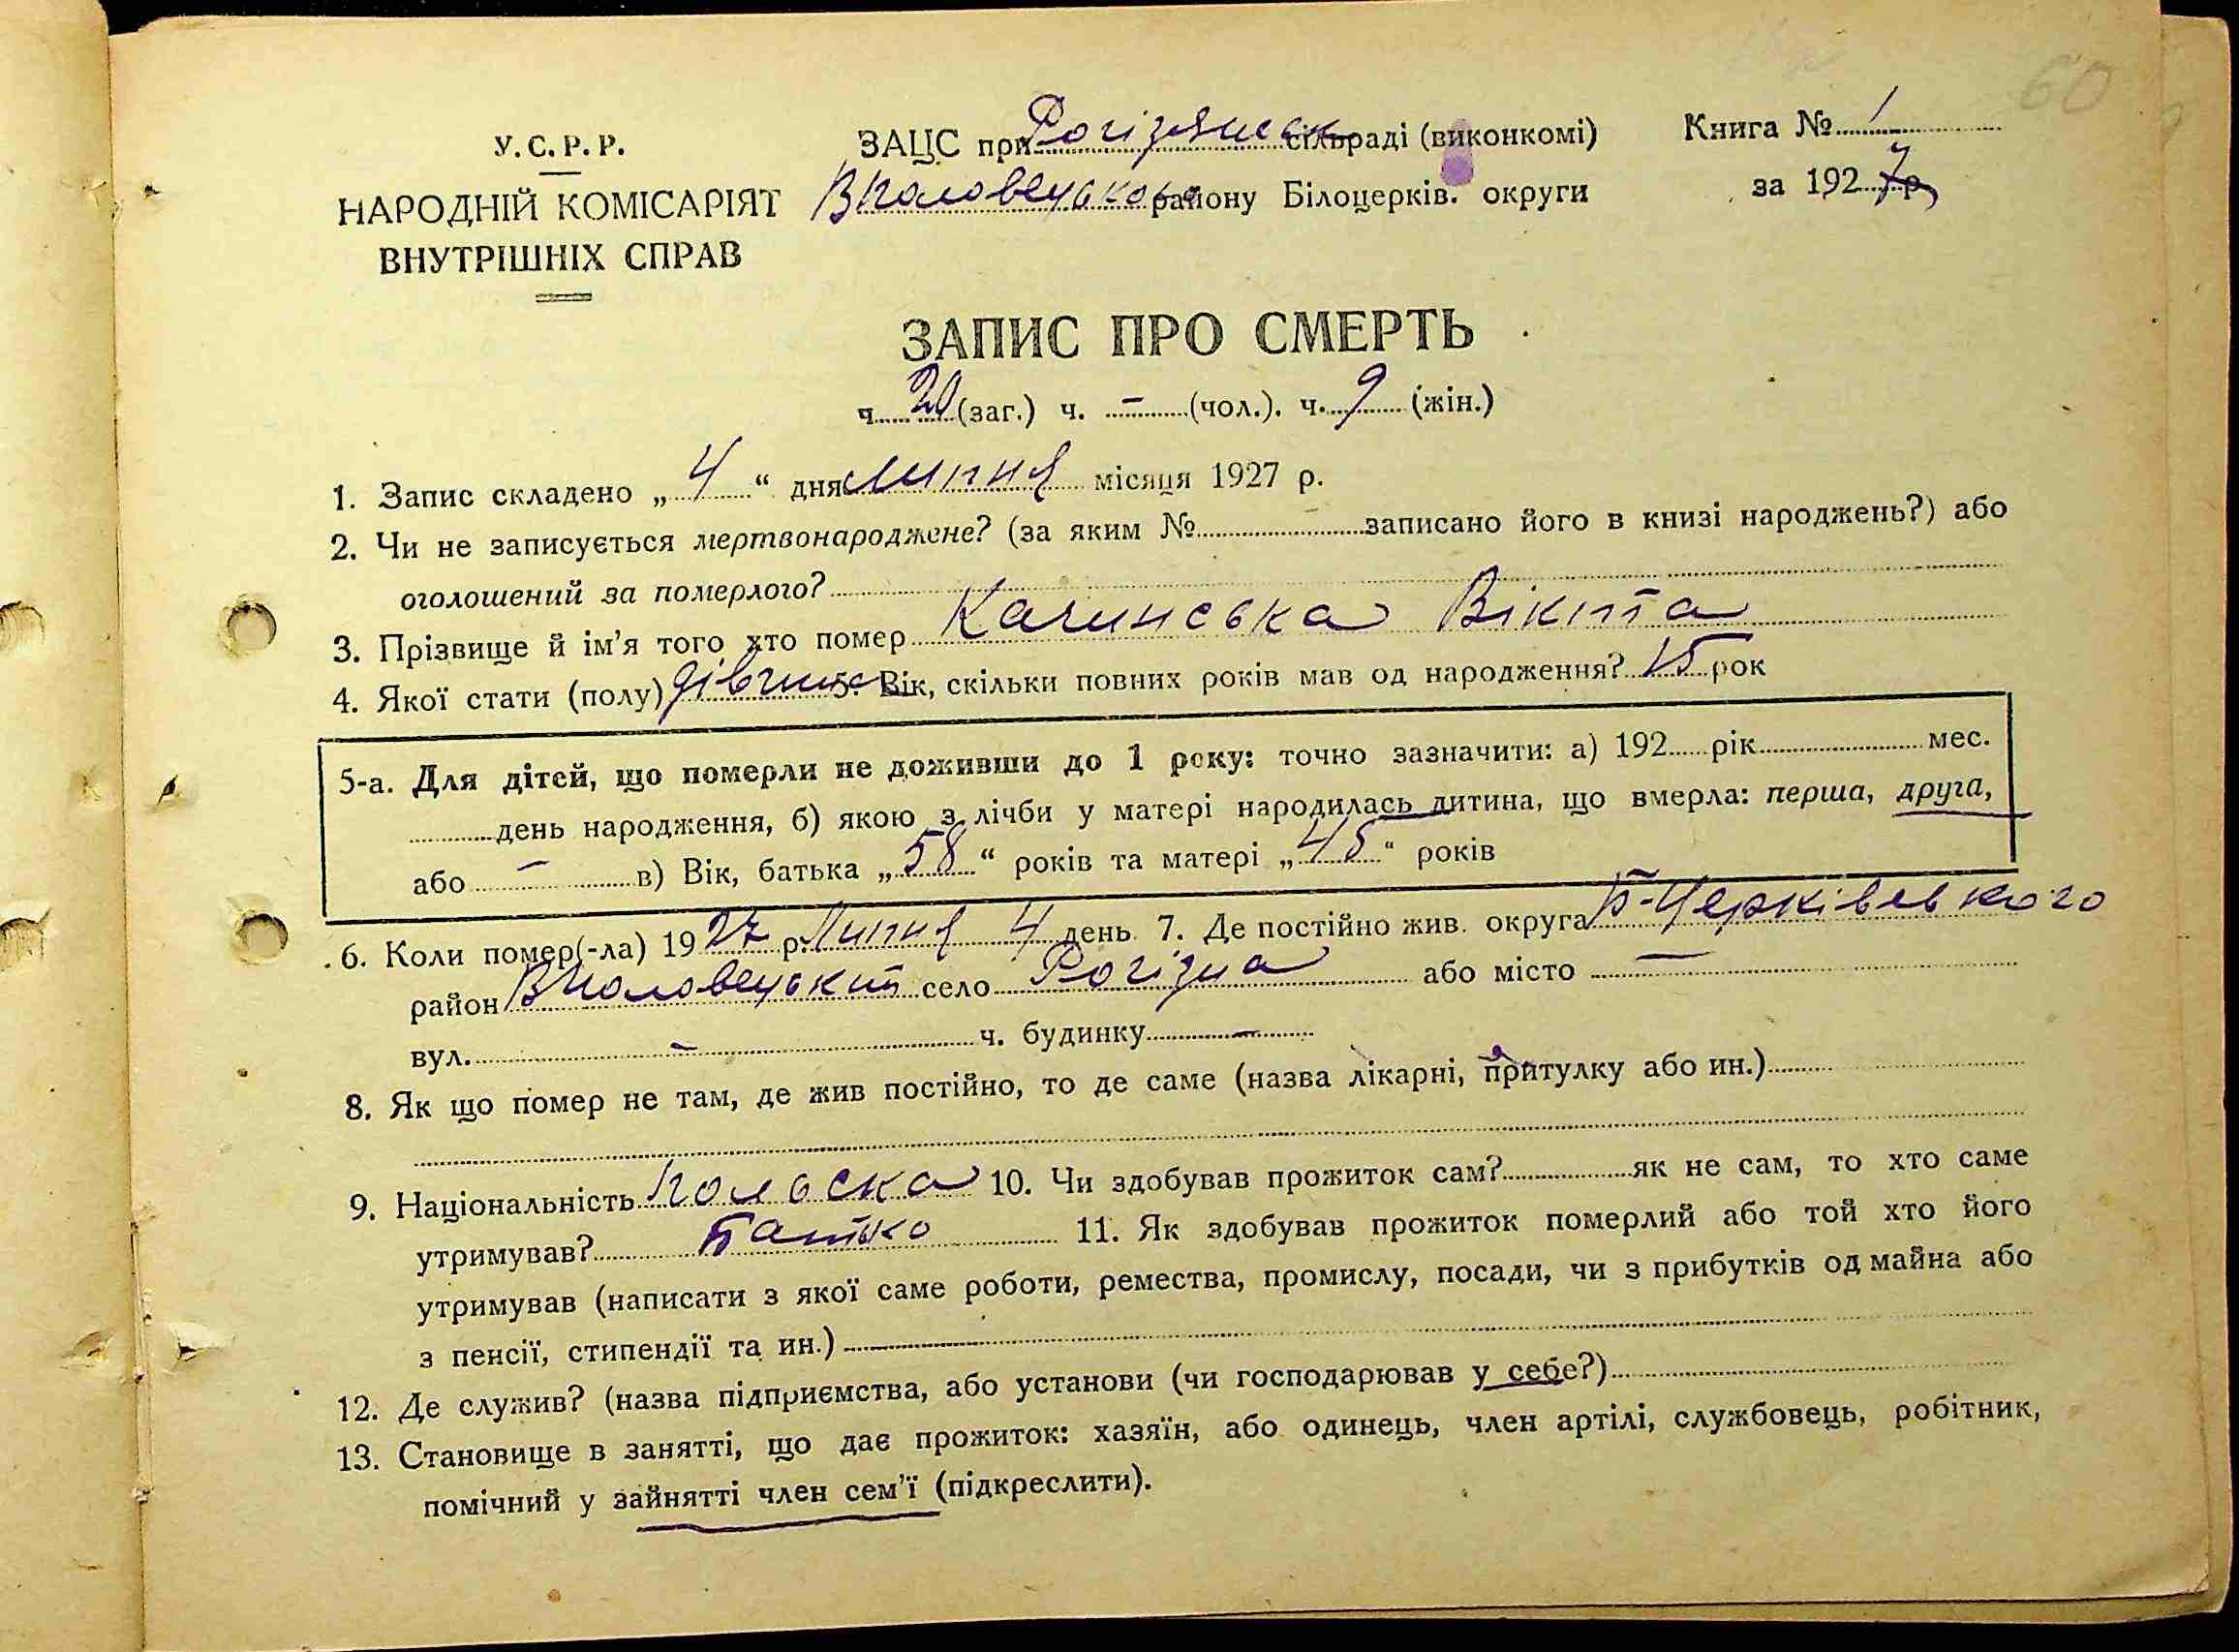 60
У.С.Р.Р.
НАРОДНІЙ КОМІСАРІЯТ
ВНУТРІШНІХ СПРАВ
ЗАЦС при Рогізянськ сільраді (виконкомі)
ВПоловецького району Білоцерків. округи
Книга № 1
за 1927 р
ЗАПИС ПРО СМЕРТЬ
ч 20 (заг.) ч. – (чол.). ч. 9 (жін.)
1. Запис складено „ 4 “ дня Липня місяця 1927 р.
2. Чи не записується мертвонароджене? (за яким № записано його в книзі народжень?) або
оголошений за померлого?
3. Прізвище й ім'я того хто помер Качинська Вікта
4. Якої стати (полу) дівчина 5. Вік, скільки повних років мав од народження? 15 рок
5-а. Для дітей, що померли не доживши до 1 року: точно зазначити: а) 192 рік мес.
день народження, б) якою з лічби у матері народилась дитина, що вмерла: перша, друга,
або – в) Вік, батька „ 58 “ років та матері „ 45 “ років
6. Коли помер(-ла) 1927 р. Липня 4 день 7. Де постійно жив. округа Б-Церківського
район ВПоловецький село Рогізна або місто –
вул. – ч. будинку –
8. Як що помер не там, де жив постійно, то де саме (назва лікарні, притулку або ин.)
9. Національність Полька 10. Чи здобував прожиток сам? як не сам, то хто саме
утримував? Батько 11. Як здобував прожиток померлий або той хто його
утримував (написати з якої саме роботи, ремества, промислу, посади, чи з прибутків од майна або
з пенсії, стипендії та ин.)
12. Де служив? (назва підприємства, або установи (чи господарював у себе?)
13. Становище в занятті, що дає прожиток: хазяїн, або одинець, член артілі, службовець, робітник,
помічний у зайнятті член сем'ї (підкреслити).